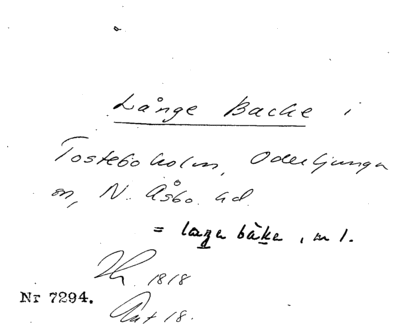 Långe Backe i
Tosteboholm, Oderljunga
sn, N. Åsbo hd.
= laŋa bake, m 1.
1818
Nr 7294.
Akt 18.